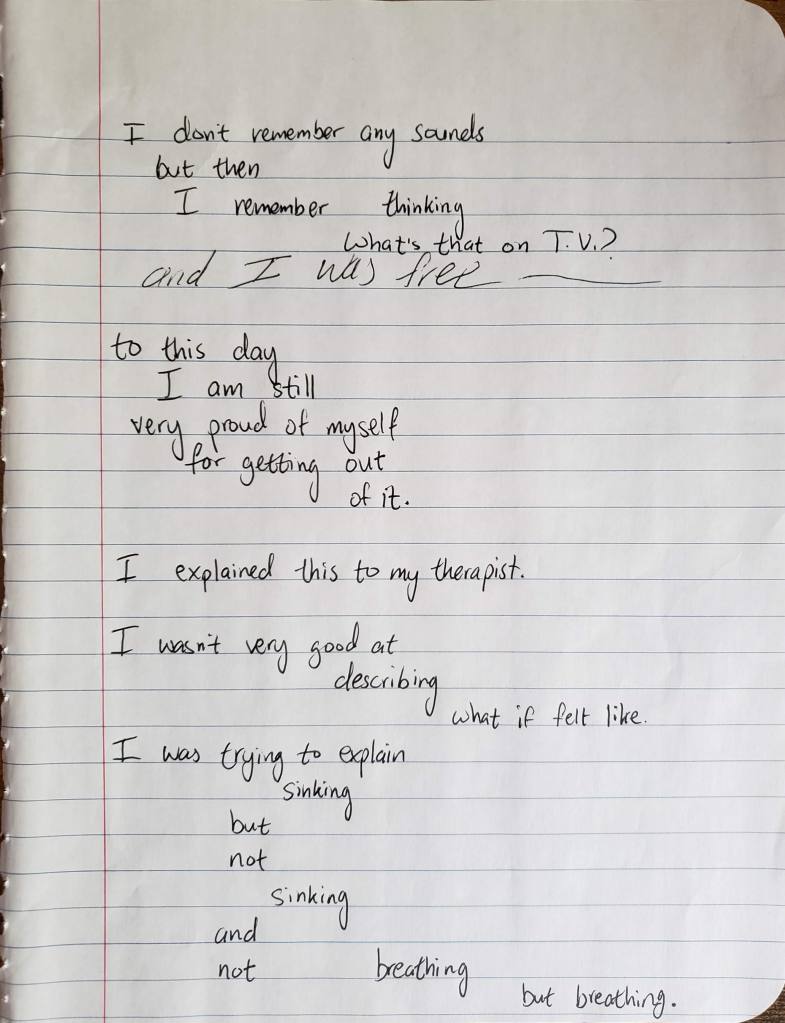 I don't remember any sounds
but then
I remember thinking
What's that on T.V.?
and I was free
to this day
I am still
very proud of myself
for getting out
of it.
I explained this to my therapist.
I wasn't very good at
describing
what if felt like.
I was trying to explain
sinking
but
not
sinking
and
not breathing
but breathing.